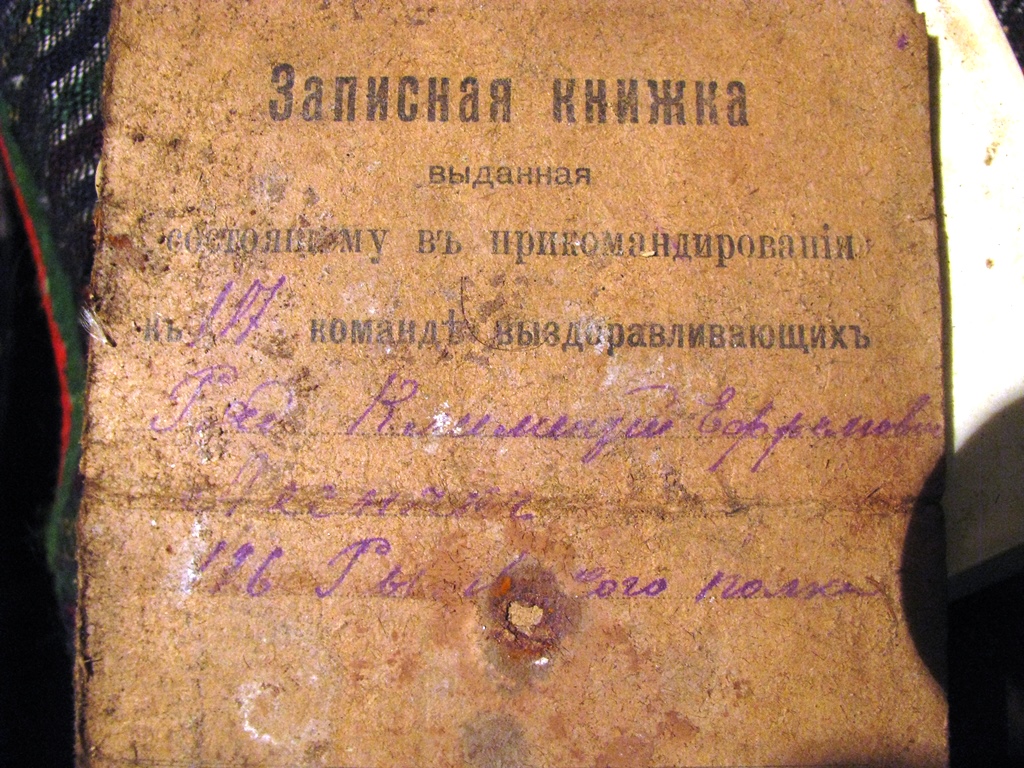 Записная книжка
выданная
состоящему въ прикомандированіи
къ 117 командѣ выздоравливающихъ
Ряд Климентій
126 полка